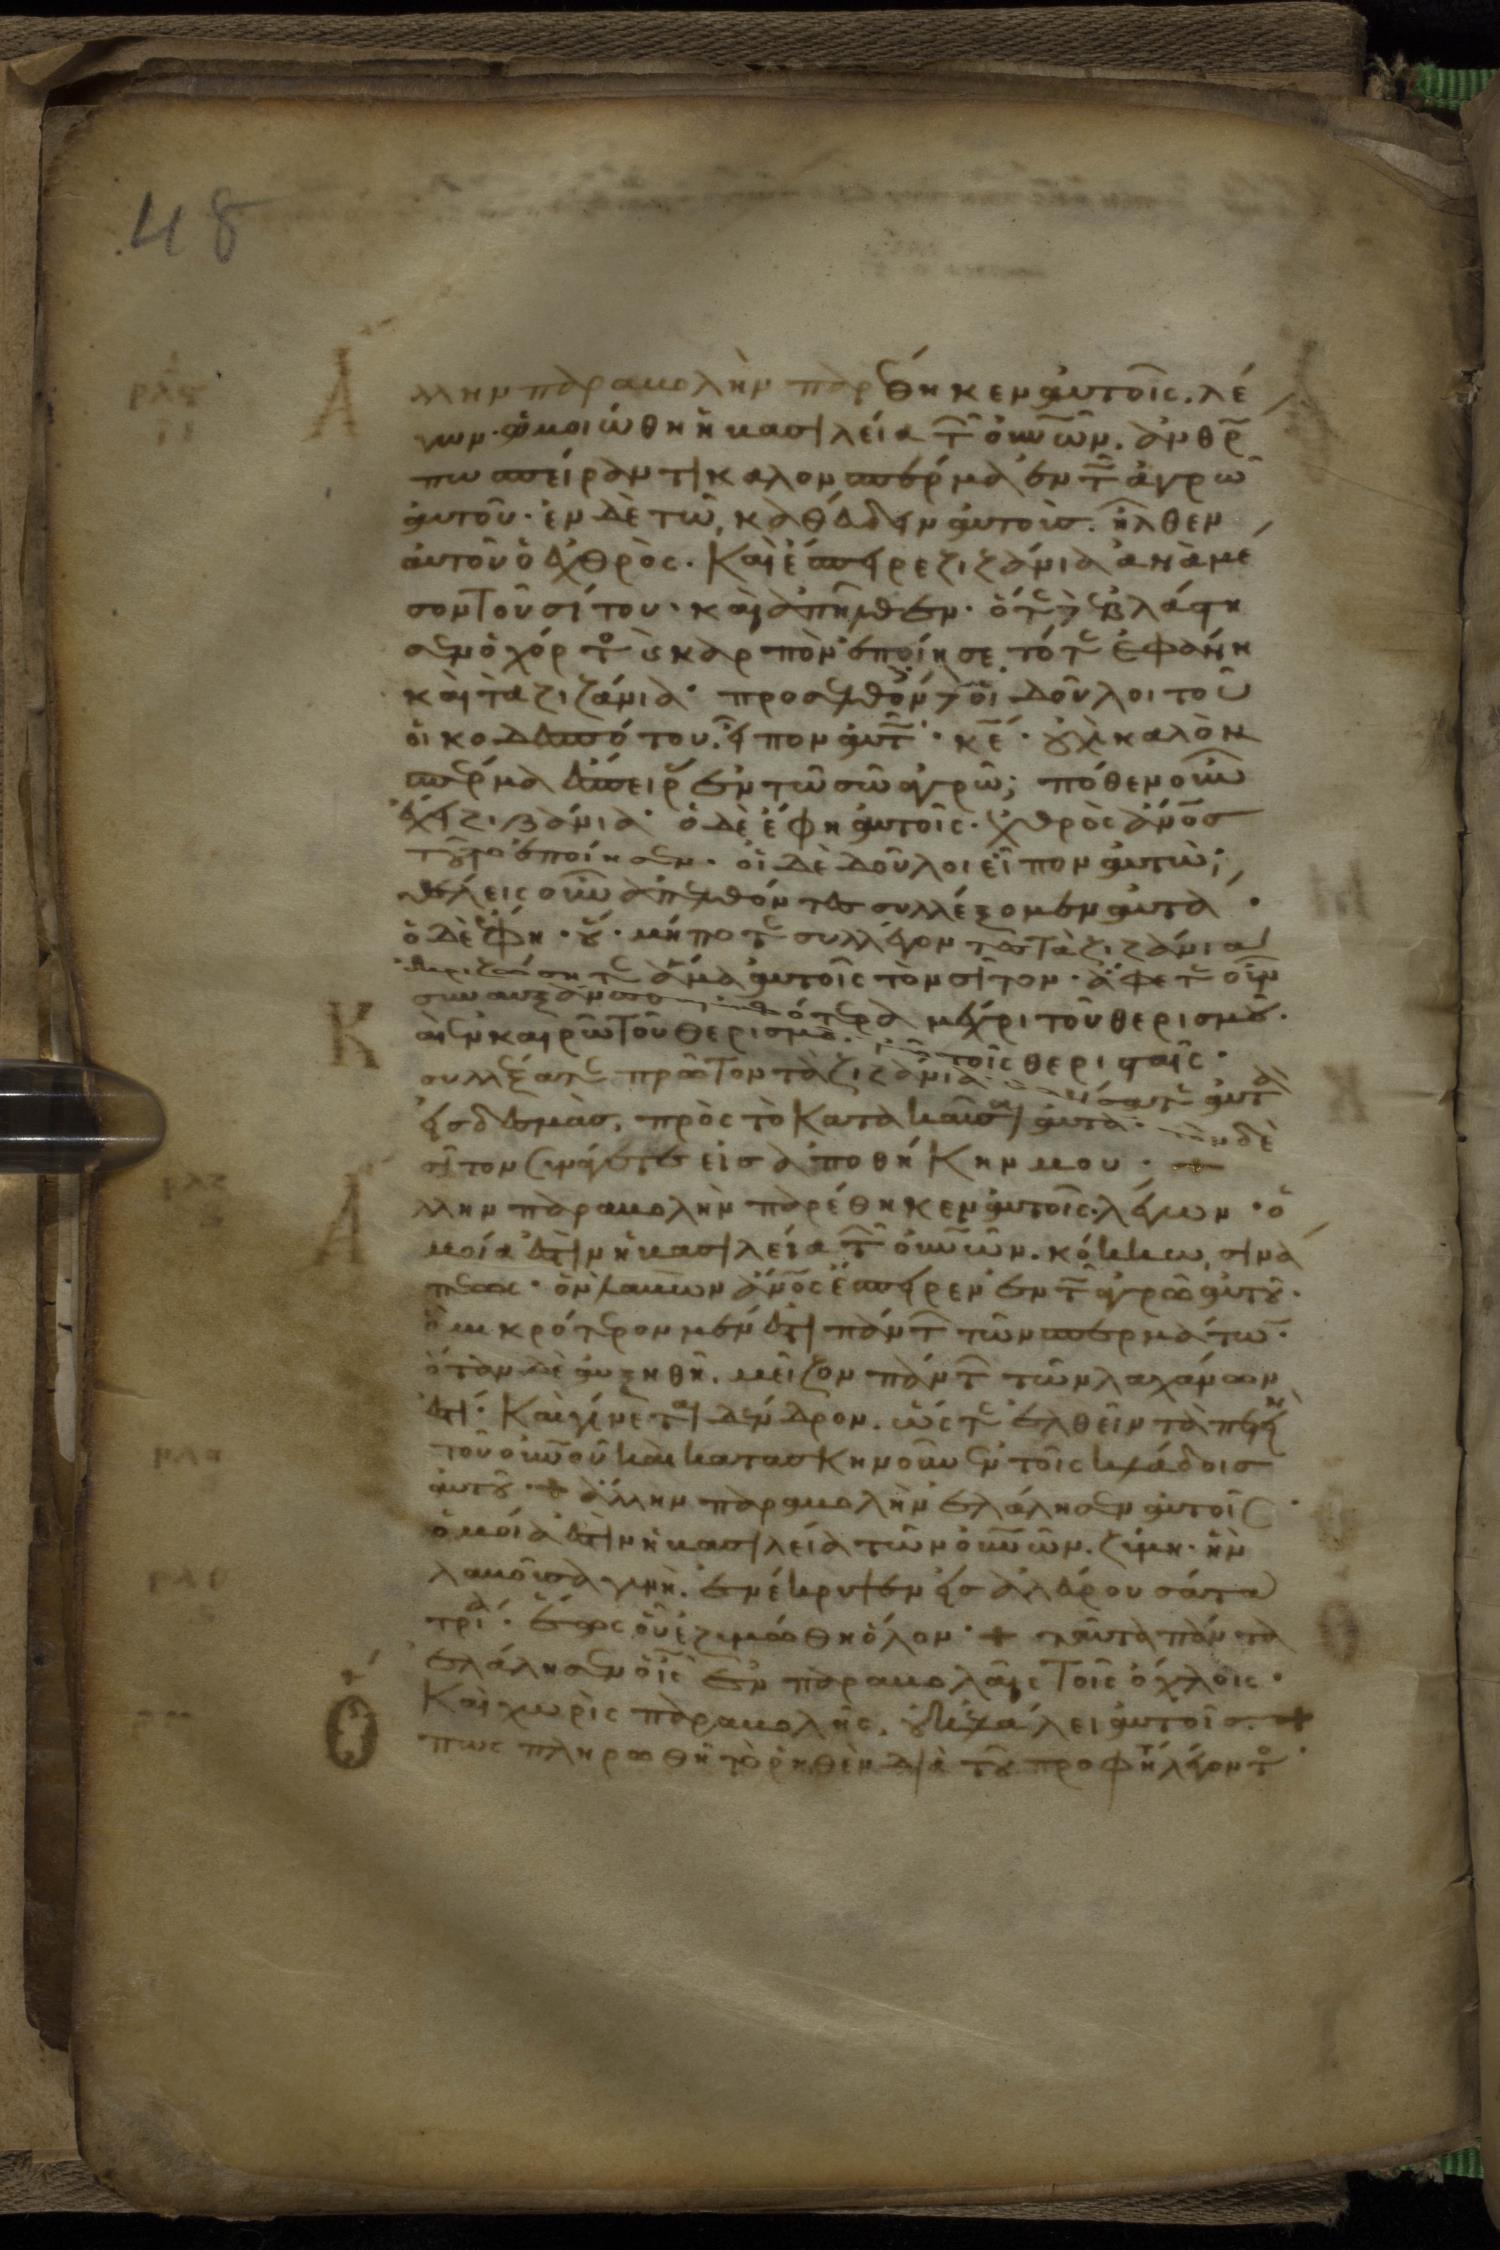 48
Ἄλλην παραβολὴν παρέθηκεν αὐτοῖς. λέ
γων· ὡμοιώθη ἡ βασιλεία τῶ οὐνῶν. ἀνθρ
πω σπείραντι καλον σπέρμα ἐν τῶ ἀγρῶ
αὐτοῦ· ἐν δὲ τῶ καθεύδειν αὐτοὺσ. ἦλθεν
αὐτοῦ ὁ ἐχθρὸς. Καὶ ἔσπειρε ζιζάνια ἀνὰ μέ
σον τοῦ σίτου· καὶ ἀπῆλθεν· ὅτε δὲ ἐβλάστη
σεν ὁ χόρτος καὶ καρπὸν ἐποίησε τότε ἐφάνη
καὶ τὰ ζιζάνια· προσελθόντες δὲ οἱ δοῦλοι τοῦ
οἰκοδεσπότου. εἶπον αὐτῶ· κε· οὐχὶ καλὸν
σπέρμα ἔσπειρας ἐν τῶ σῶ ἀγρῶ; πόθεν οὖν
ἔχει ζιζάνια· ὁ δὲ ἔφη αὐτοῖς. ἐχθρὸς ἀνοσ
τοῦτο ἐποίησεν. οἱ δὲ δοῦλοι εἶπον αὐτῶ;
θέλεις οὖν ἀπελθόντες συλλέξομεν αὐτά·
ὁ δὲ ἔφη· οὔ· μήποτε συλλέγοντες τὰ ζιζάνια
ἐκριζώσητε ἅμα αὐτοῖς τὸν σῖτον· ἄφετε οὖν
συναυξάνεσθαι ἀμφότερα μέχρι τοῦ θερισμοῦ.
Καὶ ἐν καιρῶ τοῦ θερισμοῦ. ἐρῶ τοῖς θερισταῖς·
συλλέξατε πρῶτον τὰ ζιζάνια καὶ δήσατε αὐτὰ
εἰσ δέσμὰς, πρὸς τὸ κατακαῦσαι αὐτὰ· τὸν δὲ
σῖτον συναγάγετε εἰσ ἀποθήκην μου· +
Ἄλλην παραβολὴν παρέθηκεν αὐτοῖς. λέγων· ὁ
μοία ἐστὶν ἡ βασιλεία τῶ οὐνῶν. κόκκω σινά
πεως· ὃν λαβὼν ἄνος ἔσπειρεν ἐν τῶ ἀγρῶ αὐτοῦ.
ὃ μικρότερον μέν ἐστι πάντων τῶν σπερμάτω·
ὅταν δὲ αὐξηθῆ. μεῖζον πάντων τῶν λαχάνων
ἐστί. Καὶ γίνεται δένδρον. ὥστε ἐλθεῖν τὰ πετεινὰ
τοῦ οὐνοῦ καὶ κατασκηνοῦν ἐν τοῖς κλάδοισ
αὐτοῦ· + ἄλλην παραβολὴν ἐλάλησεν αὐτοῖς·
ὁμοία ἐστὶν ἡ βασιλεία τῶν οὐνῶν. ζύμη. ἣν
λαβοῦσα γυνὴ. ἐνέκρυψεν εἰσ ἀλεύρου σάτα
τρία. ἕως οὗ ἐζυμώθη ὅλον· + ταῦτα πάντα
ἐλάλησεν ὁ ις ἐν παραβολαῖς τοῖς ὄχλοις.
Καὶ χωρὶς παραβολῆς, οὐκ ἐλάλει αὐτοῖσ. +
Ὅπως πληρωθῆ τὸ ῥηθὲν διὰ τοῦ προφήτου λέγοντος